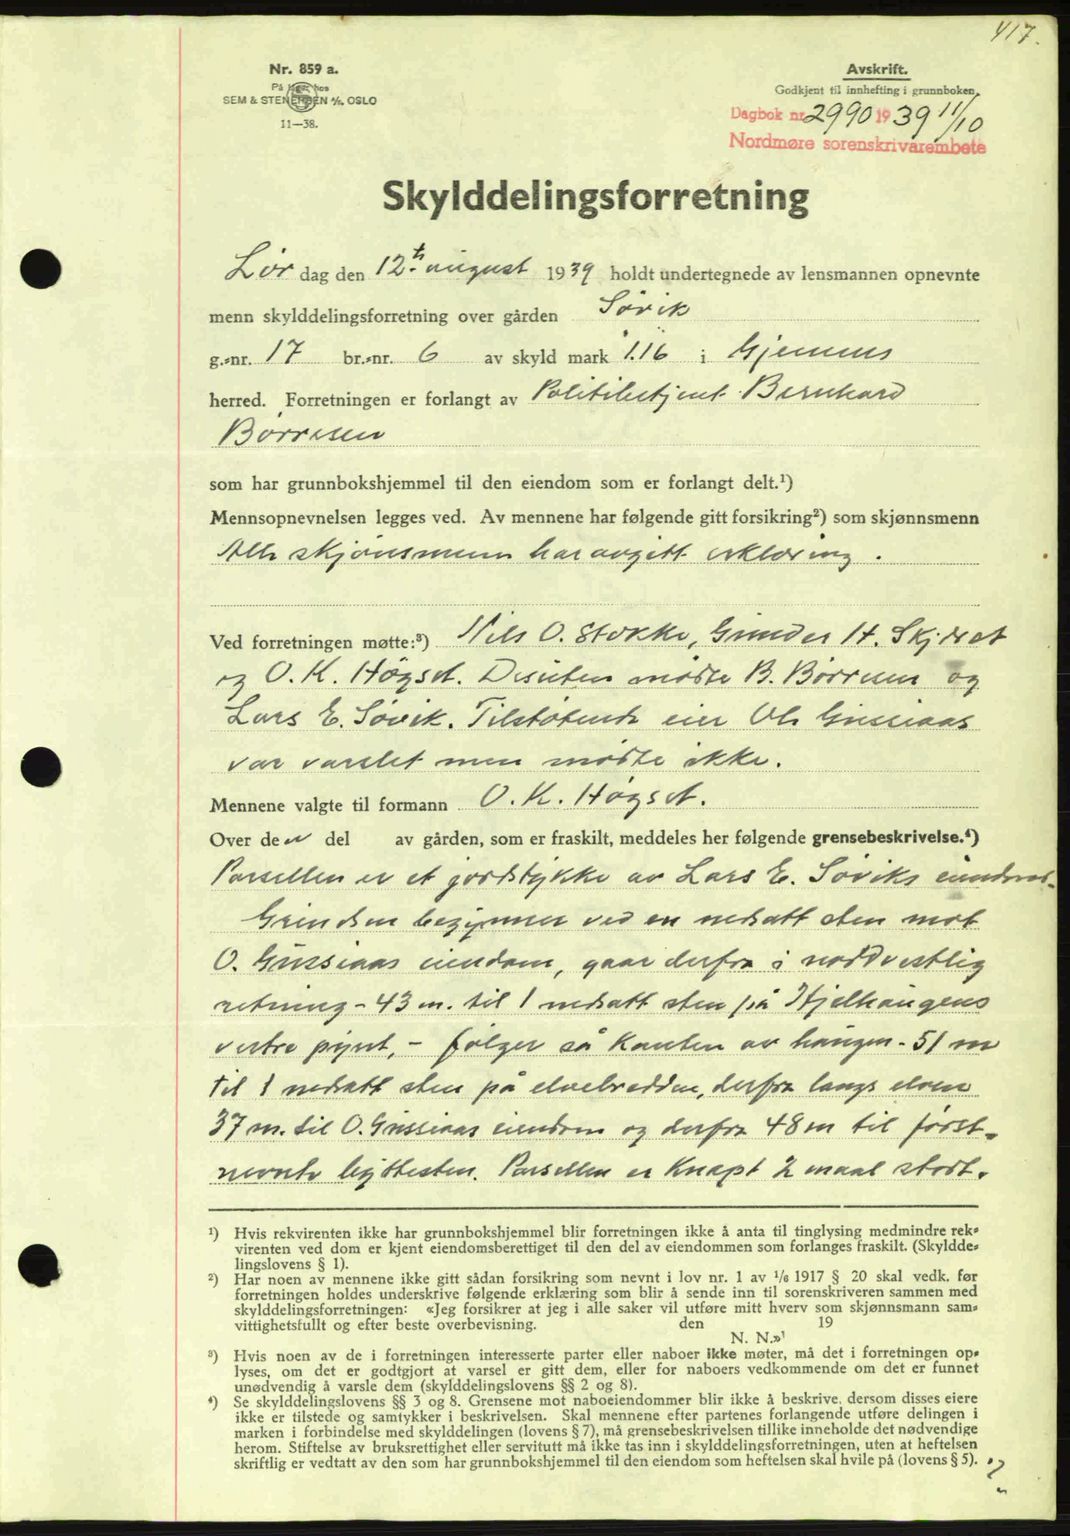 417.
Nr. 859 a.
På lager hos
SEM & STENERSEN A/S. OSLO
11—38.
Avskrift.
Godkjent til innhefting i grunnboken.
Dagbok nr. 2990 1939 11/10
Nordmøre sorenskrivarembete
Skylddelingsforretning
Lør dag den 12te august 1939 holdt undertegnede av lensmannen opnevnte
menn skylddelingsforretning over gården Søvik
g.-nr. 17 br.-nr. 6 av skyld mark 1.16 i Gjemnes
herred. Forretningen er forlangt av Politibetjent Bernhard
Børresen
som har grunnbokshjemmel til den eiendom som er forlangt delt.¹)
Mennsopnevnelsen legges ved. Av mennene har følgende gitt forsikring²) som skjønnsmenn
Alle skjønsmenn har avgitt erklæring.
Ved forretningen møtte:³) Nils O. Stokke, Gunder H. Skjdret
og O. K. Høgset. Desuten mødte B. Børresen og
Lars E. Søvik. Tilstøtende eier Ole Gussiaas
var varslet men mødte ikke.
Mennene valgte til formann O. K. Høgset.
Over den del av gården, som er fraskilt, meddeles her følgende grensebeskrivelse.⁴)
Parsellen er et jordstykke av Lars E. Søviks eiendom.
Grindsen begynner ved en nedsatt sten mot
O. Gussiaas eiendom, gaar derfra i norddvestlig
retning - 43 m. til 1 nedsatt sten på Hjelhaugens
vestre pynt, - følger så kanten av haugen - 51 m
til 1 nedsatt sten på elvebredden, derfra langs elven
37 m. til O. Gussiaas eiendom og derfra 48 m til først-
nevnte byttesten. Parsellen er knapt 2 maal stort.
¹) Hvis rekvirenten ikke har grunnbokshjemmel blir forretningen ikke å anta til tinglysing medmindre rek-
virenten ved dom er kjent eiendomsberettiget til den del av eiendommen som forlanges fraskilt. (Skyldde-
lingslovens § 1).
²) Har noen av mennene ikke gitt sådan forsikring som nevnt i lov nr. 1 av 1/6 1917 § 20 skal vedk. før
forretningen holdes underskrive følgende erklæring som blir å sende inn til sorenskriveren sammen med
skylddelingsforretningen: «Jeg forsikrer at jeg i alle saker vil utføre mitt hverv som skjønnsmann sam-
vittighetsfullt og efter beste overbevisning. den 19
N. N.»¹
³) Hvis noen av de i forretningen interesserte parter eller naboer ikke møter, må det i forretningen op-
lyses, om det er godtgjort at varsel er gitt dem, eller for naboers vedkommende om det er funnet
unødvendig å varsle dem (skylddelingslovens §§ 2 og 8).
⁴) Se skylddelingslovens §§ 3 og 8. Grensene mot naboeiendommer blir ikke å beskrive, dersom disses eiere
ikke er tilstede og samtykker i beskrivelsen. Skal mennene efter partenes forlangende utføre delingen i
marken i forbindelse med skylddelingen (lovens § 7), må grensebeskrivelsen tillike inneholde det nødvendige
herom. Stiftelse av bruksrettighet eller servitutt må ikke tas inn i skylddelingsforretningen, uten at heftelsen
skriftlig er vedtatt av den som har grunnbokshjemmel til den eiendom som heftelsen skal hvile på (lovens § 5).